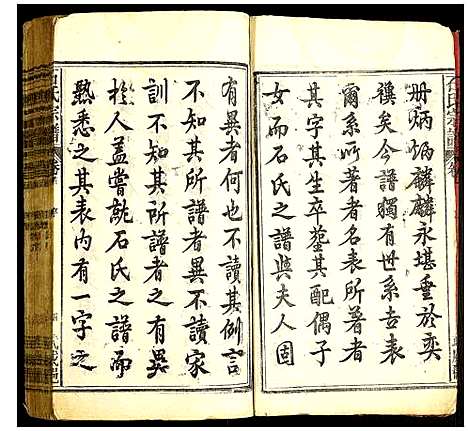 冊炳炳麟麟永堪垂於奕
禩矣今譜獨有世系吉表
爾系所著者名表所著者
其字其生卒塟其配偶子
女而石氏之譜與夫人固
有異者何也不讀其例言
不知其所譜者異不讀家
訓不知其所譜者之有異
於人蓋嘗就石氏之譜而
熟悉之其表內有一字之
石氏宗譜